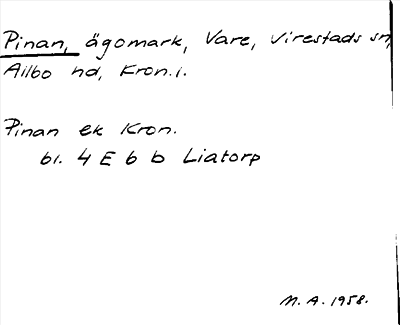 Pinan, ägomark, Vare, Virestads sn,
Allbo hd, Kron.l.
Pinan ek Kron.
bl. 4 E b b Liatorp
M.A. 1958.